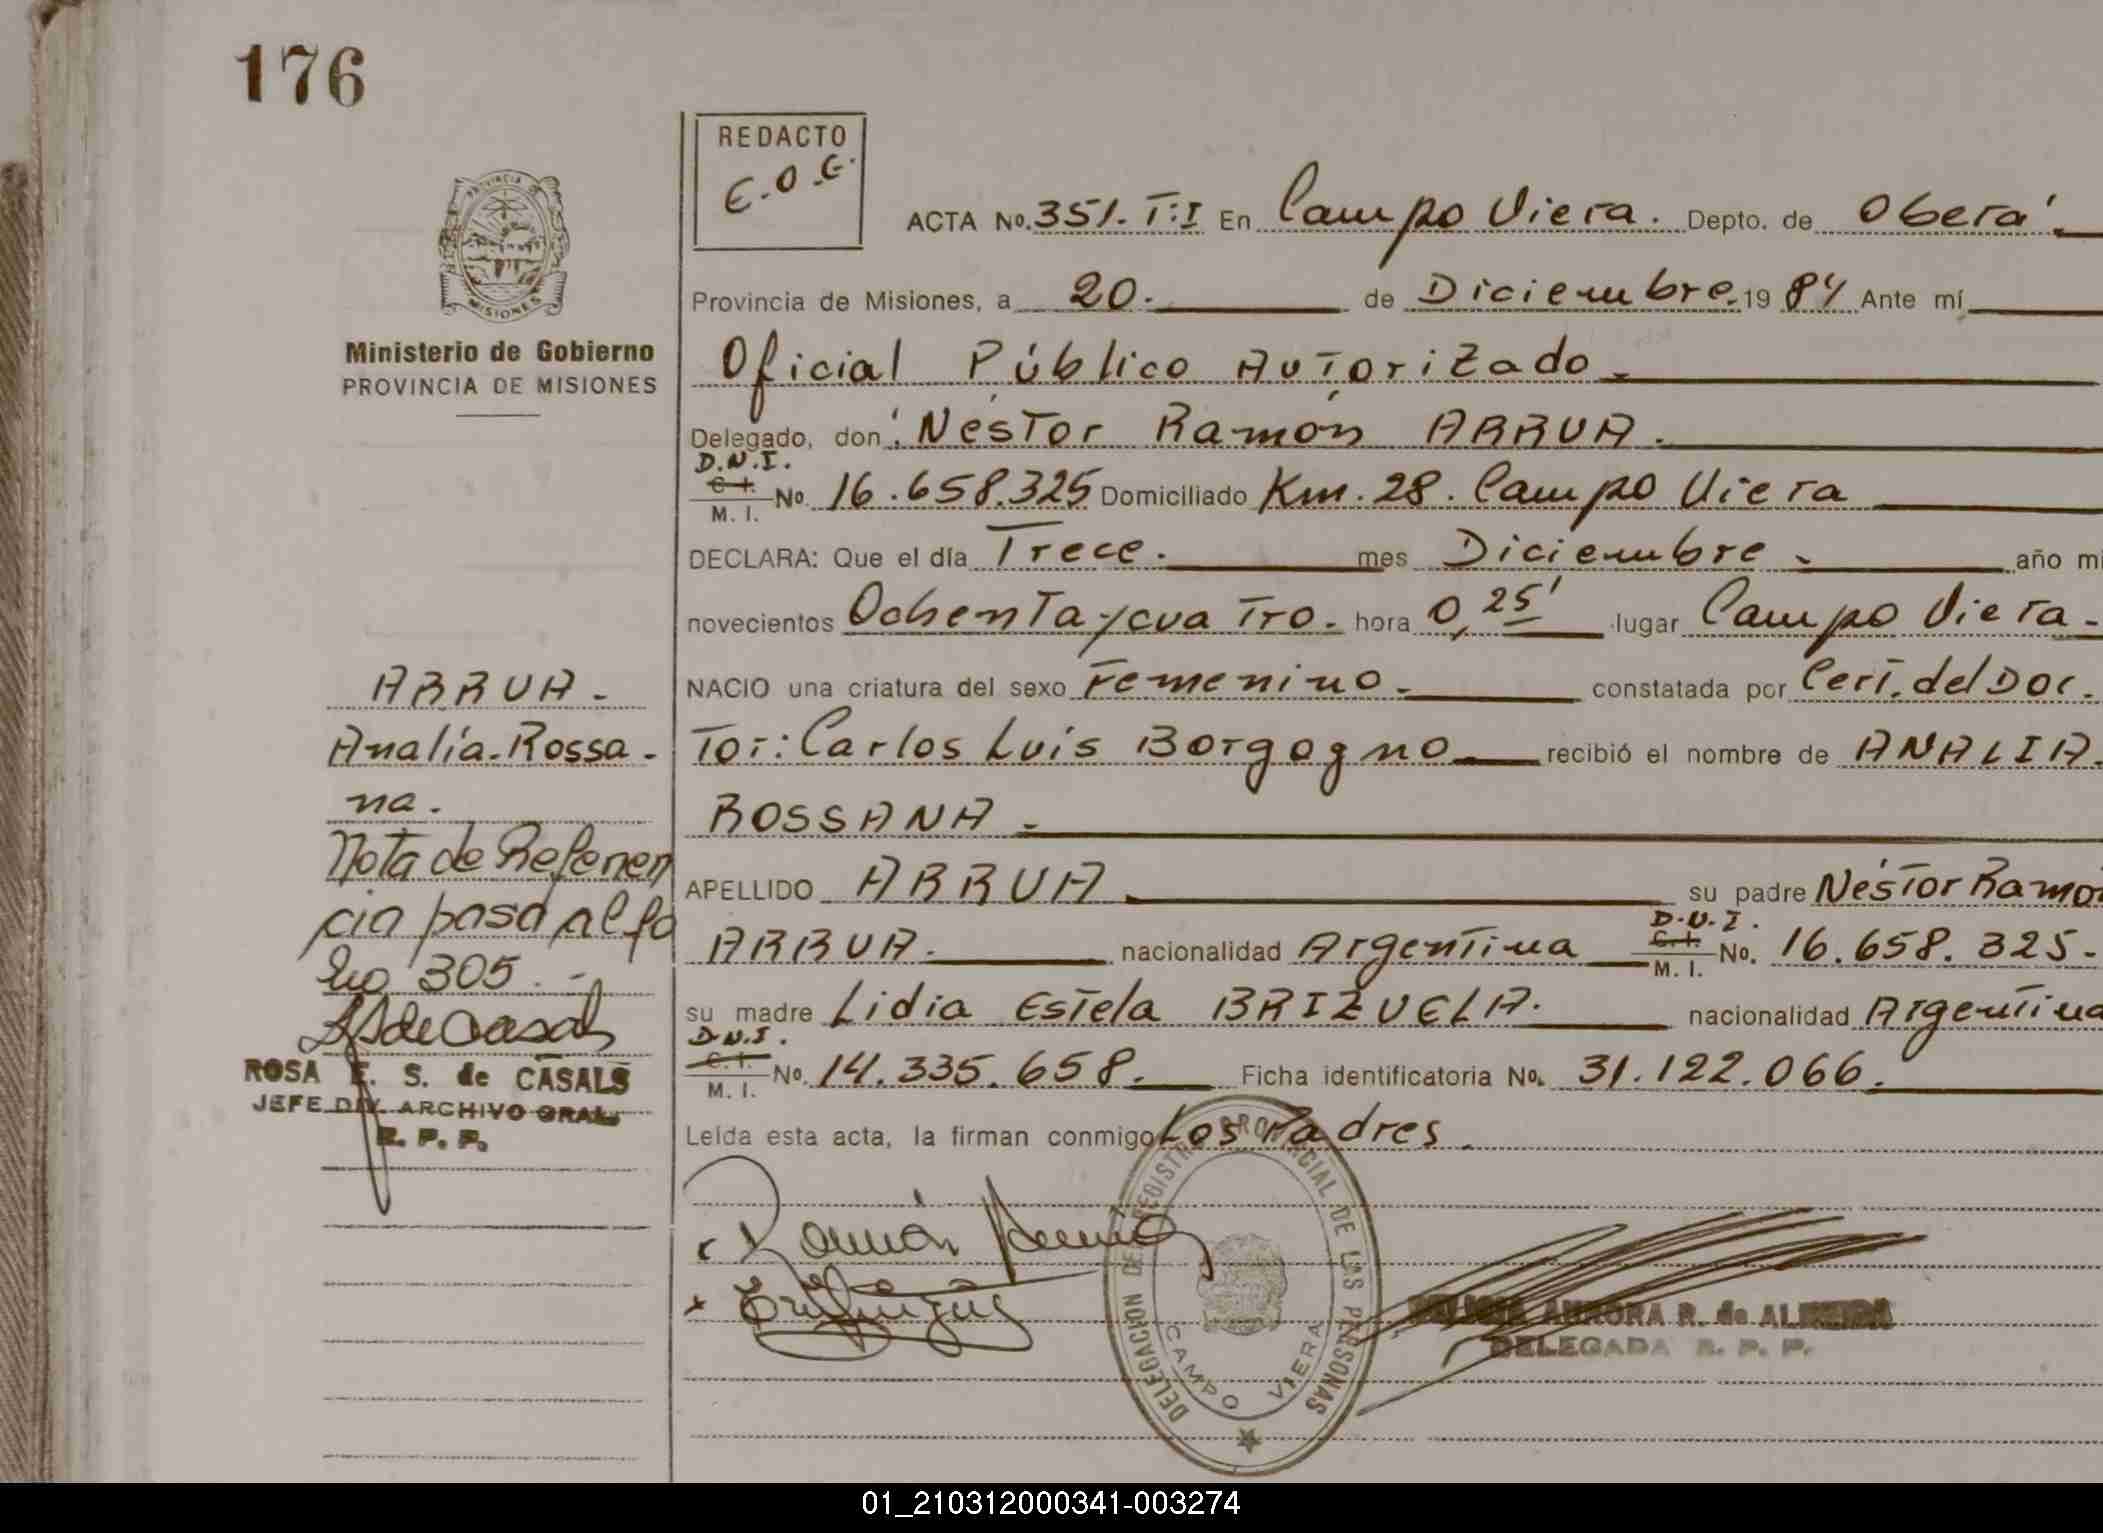 176
REDACTO
E.O.G.
ACTA No. 351. T:I En Campo Viera. Depto. de Oberá.
PROVINCIA DE
MISIONES
Provincia de Misiones, a 20. de Diciembre. 1984 Ante mí
Ministerio de Gobierno
PROVINCIA DE MISIONES
Oficial Público Autorizado
Delegado, don: Néstor Ramón ARRUA.
D.N.I.
C.I.
M. I. No. 16.658.325 Domiciliado Km. 28. Campo Viera
DECLARA: Que el día Trece. mes Diciembre año mi
novecientos Ochenta y cuatro. hora 0,25' lugar Campo Viera.
NACIO una criatura del sexo Femenino. constatada por Cert. del Doc.
tor: Carlos Luis Borgogno recibió el nombre de ANALIA.
ROSSANA
APELLIDO ARRUA su padre Néstor Ramó
D.N.I.
ARRUA. nacionalidad Argentina C.I. M. I. No. 16.658.325.
su madre Lidia Estela BRIZUELA. nacionalidad Argentina
D.N.I.
C.I.
M. I. No. 14.335.658. Ficha identificatoria No. 31.122.066.
Leída esta acta, la firman conmigo Los Padres.
ARRUA.
Analía.Rossa.
na.
Nota de Referen
cia pasa al fo
lio 305.
ROSA E. S. de CASALS
JEFE DIV. ARCHIVO GRAL.
R. P. P.
Ramón Arrua
DELEGACION DEL REGISTRO PROVINCIAL DE LAS PERSONAS
CAMPO VIERA
AURORA R. de ALMEIDA
DELEGADA R. P. P.
01_210312000341-003274